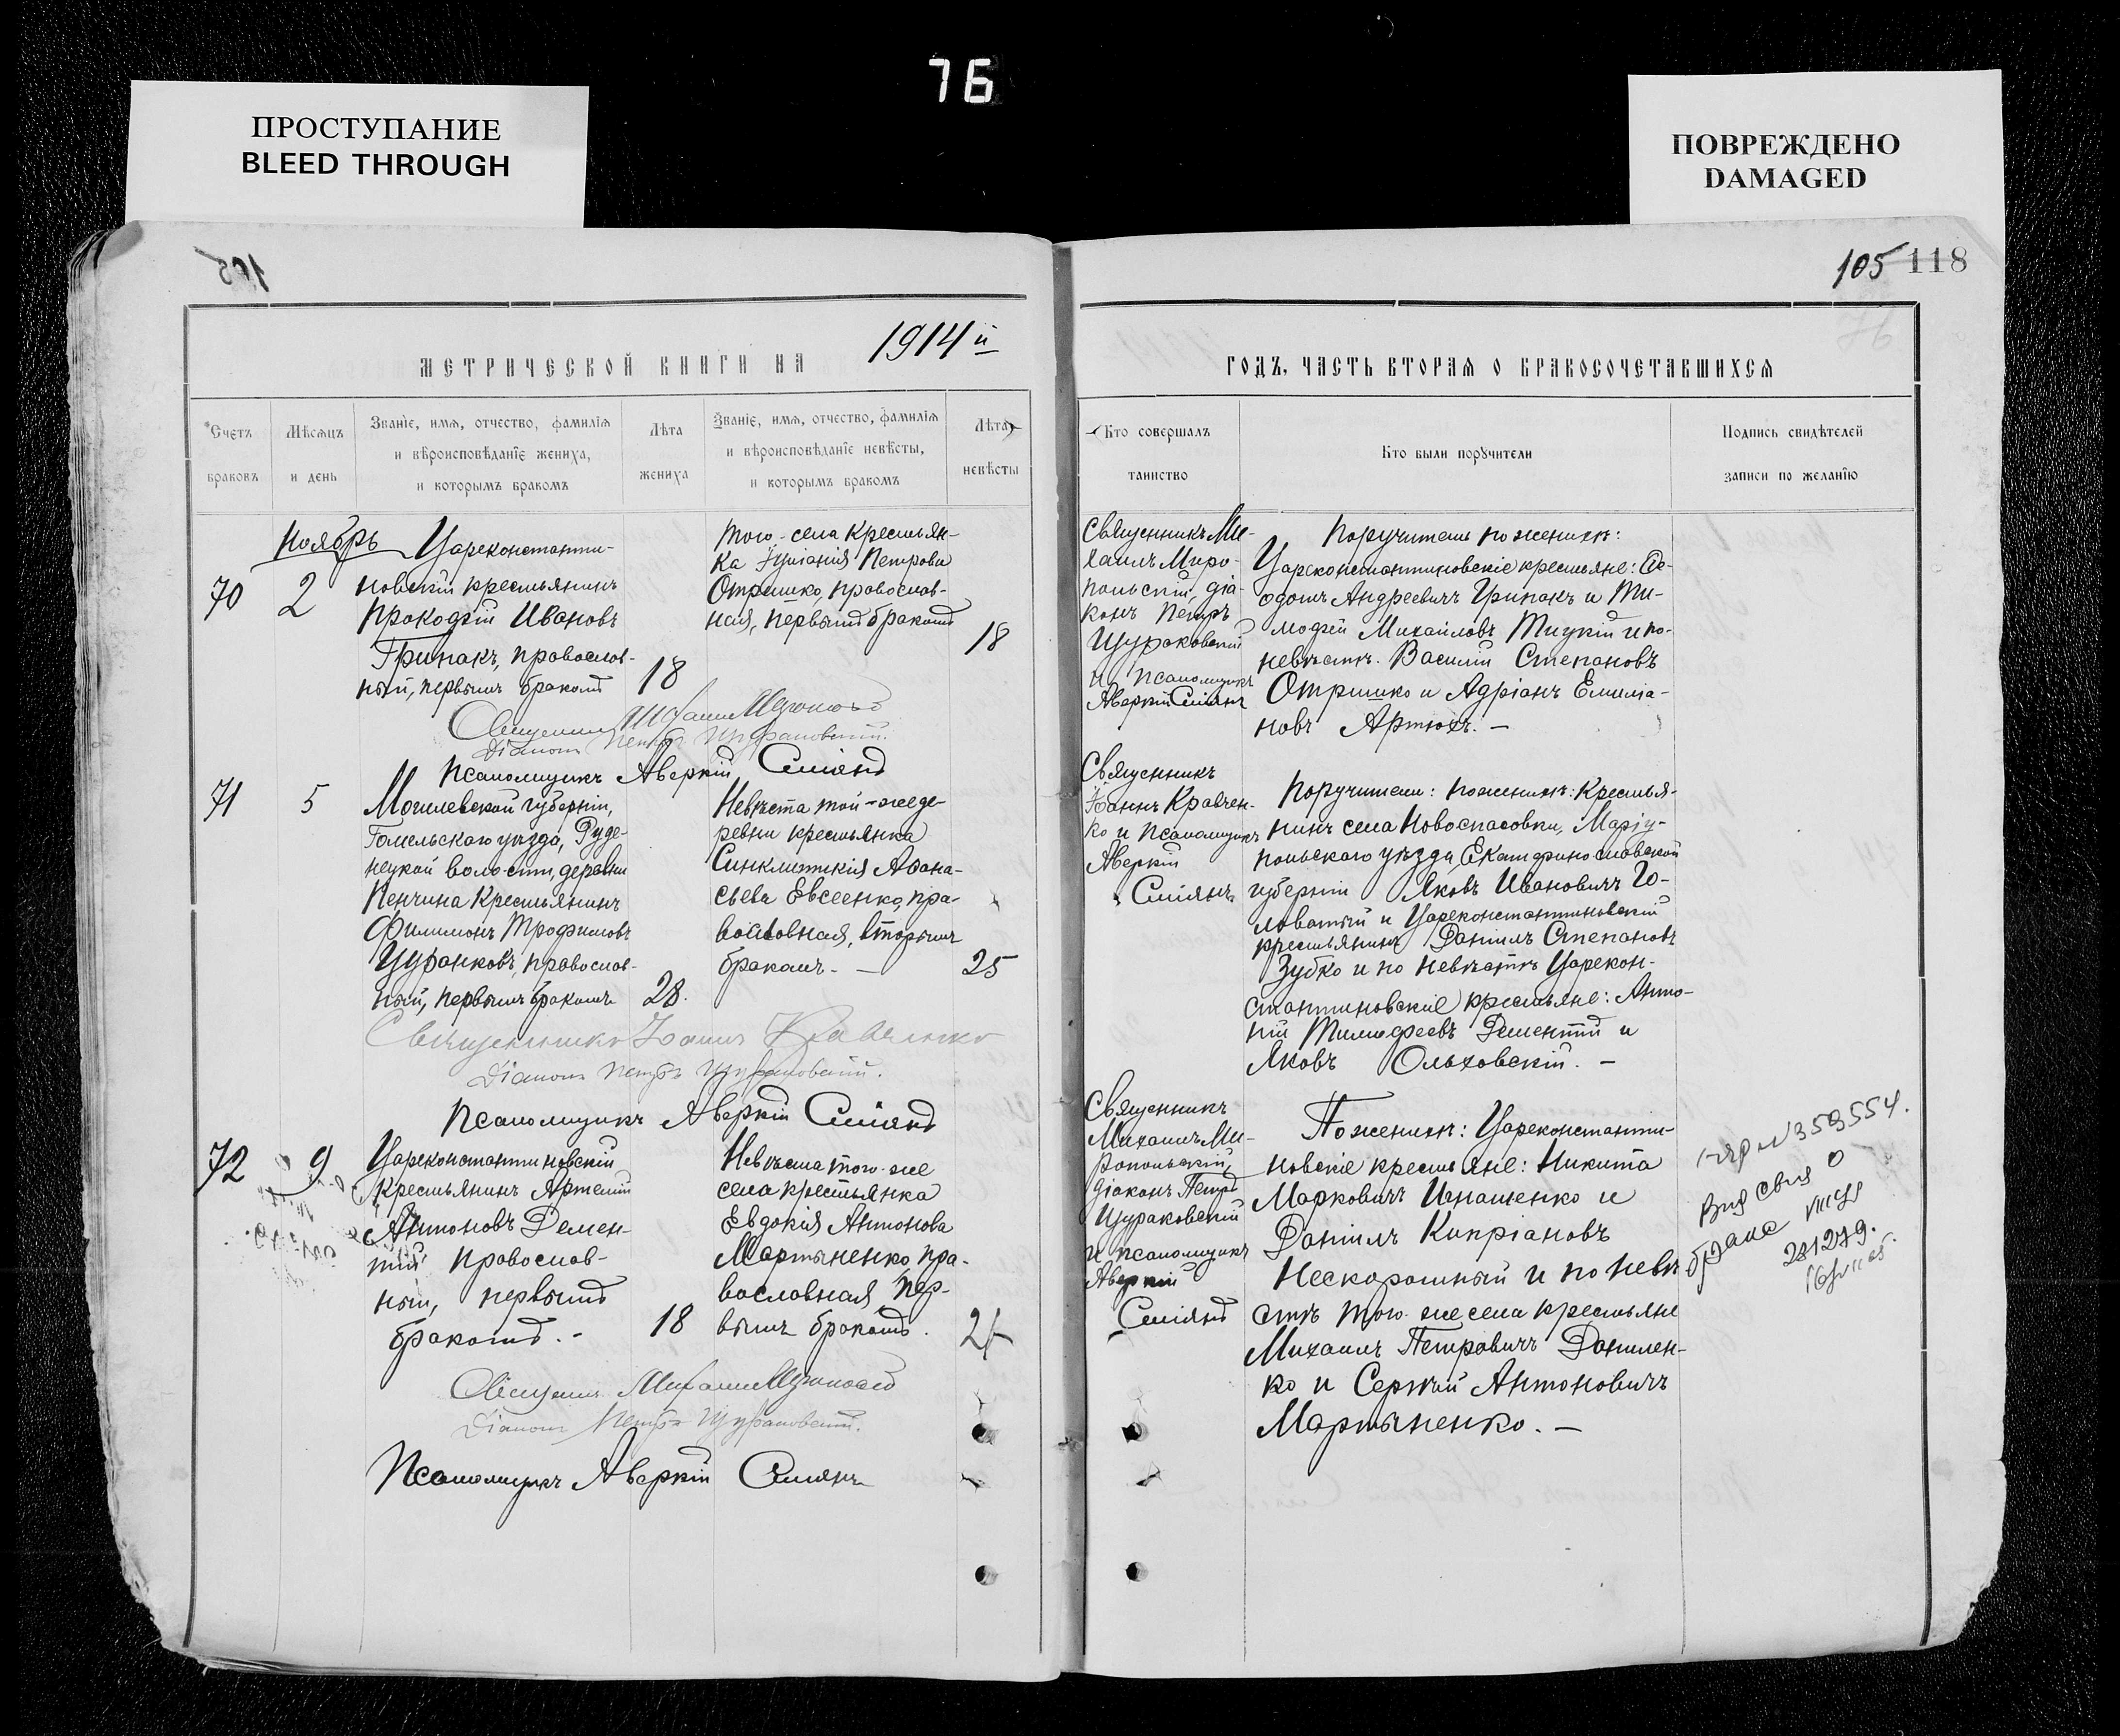 76
ПРОСТУПАНИЕ
BLEED THROUGH
ПОВРЕЖДЕНО
DAMAGED
105
105 118
МЕТРИЧЕСКОЙ КНИГИ НА 1914й
Счетъ
браковъ
Мѣсяцъ
и день
Званіе, имя, отчество, фамилія
и вѣроисповѣданіе жениха,
и которымъ бракомъ
Лѣта
жениха
Званіе, имя, отчество, фамилія
и вѣроисповѣданіе невѣсты,
и которымъ бракомъ
Лѣта
невѣсты
ГОДЪ, ЧАСТЬ ВТОРАЯ О БРАКОСОЧЕТАВШИХСЯ
Кто совершалъ
таинство
Кто были поручители
Подпись свидѣтелей
записи по желанію
70
Ноябрь
2
Цареконстанти-
новскій крестьянинъ
Прокофій Ивановъ
Грипакъ, православ-
ный, первымъ бракомъ
18
того-села крестьян-
ка Іуліанія Петрова
Отришко, православ-
ная, первымъ бракомъ
18
Священникъ Ми-
хаилъ Миро-
польскій, діа-
конъ Петръ
Щураковскій
и псаломщикъ
Аверкій Сміянъ
Поручители по женихѣ:
Цареконстантиновскіе крестьяне: Ѳе-
одотъ Андреевичъ Грипакъ и Ти-
мофей Михайловъ Тицкій и по-
невѣстѣ. Василій Степановъ
Отришко и Адріанъ Емиліа-
новъ Артюхъ. —
Священникъ Михаилъ
Діаконъ Петръ Щураковскій.
Псаломщикъ Аверкій Сміянъ
71
5
Могилевской губерніи,
Гомельскаго уѣзда, Руде-
нецкой волости, деревни
Пенчина Крестьянинъ
Филимонъ Трофимовъ
Цуранковъ, православ-
ный, первымъ бракомъ
28.
Невѣста той-же де-
ревни крестьянка
Синклитикія Аѳана-
сьева Евсеенко, пра-
вославная, вторымъ
бракомъ. —
25
Священникъ
Іоаннъ Кравчен-
ко и псаломщикъ
Аверкій
Сміянъ
Поручители: по женихѣ: Крестья-
нинъ села Новоспасовки, Маріу-
польскаго уѣзда Екатеринославской
губерніи Яковъ Ивановичъ Го-
ловатый и Цареконстантиновскій
крестьянинъ Даніилъ Степановъ
Зубко и по невѣстѣ Царекон-
стантиновскіе крестьяне: Анто-
ній Тимофеевъ Дементій и
Яковъ Ольховскій. —
Священникъ Іоаннъ Кравченко
Діаконъ Петръ Щураковскій.
Псаломщикъ Аверкій Сміянъ
72
9
Цареконстантиновскій
Крестьянинъ Артемій
Антоновъ Демен-
тій православ-
ный, первымъ
бракомъ. -
18
Невѣста того-же
села крестьянка
Евдокія Антонова
Мартыненко, пра-
вославная, пер-
вымъ бракомъ.
Священникъ
Михаилъ Ми-
ропольскій,
діаконъ Петръ
Щураковскій
и псаломщикъ
Аверкій
Сміянъ
По женихѣ: Цареконстанти-
новскіе крестьяне: Никита
Марковичъ Игнатенко и
Даніилъ Кипріановъ
Нескоромный и по невѣ
стѣ того-же села крестьяне
Михаилъ Петровичъ Данилен-
ко и Сергѣй Антоновичъ
Мартыненко. —
359554.
о
браке
Священникъ Михаилъ
Діаконъ Петръ Щураковскій.
Псаломщикъ Аверкій Сміянъ